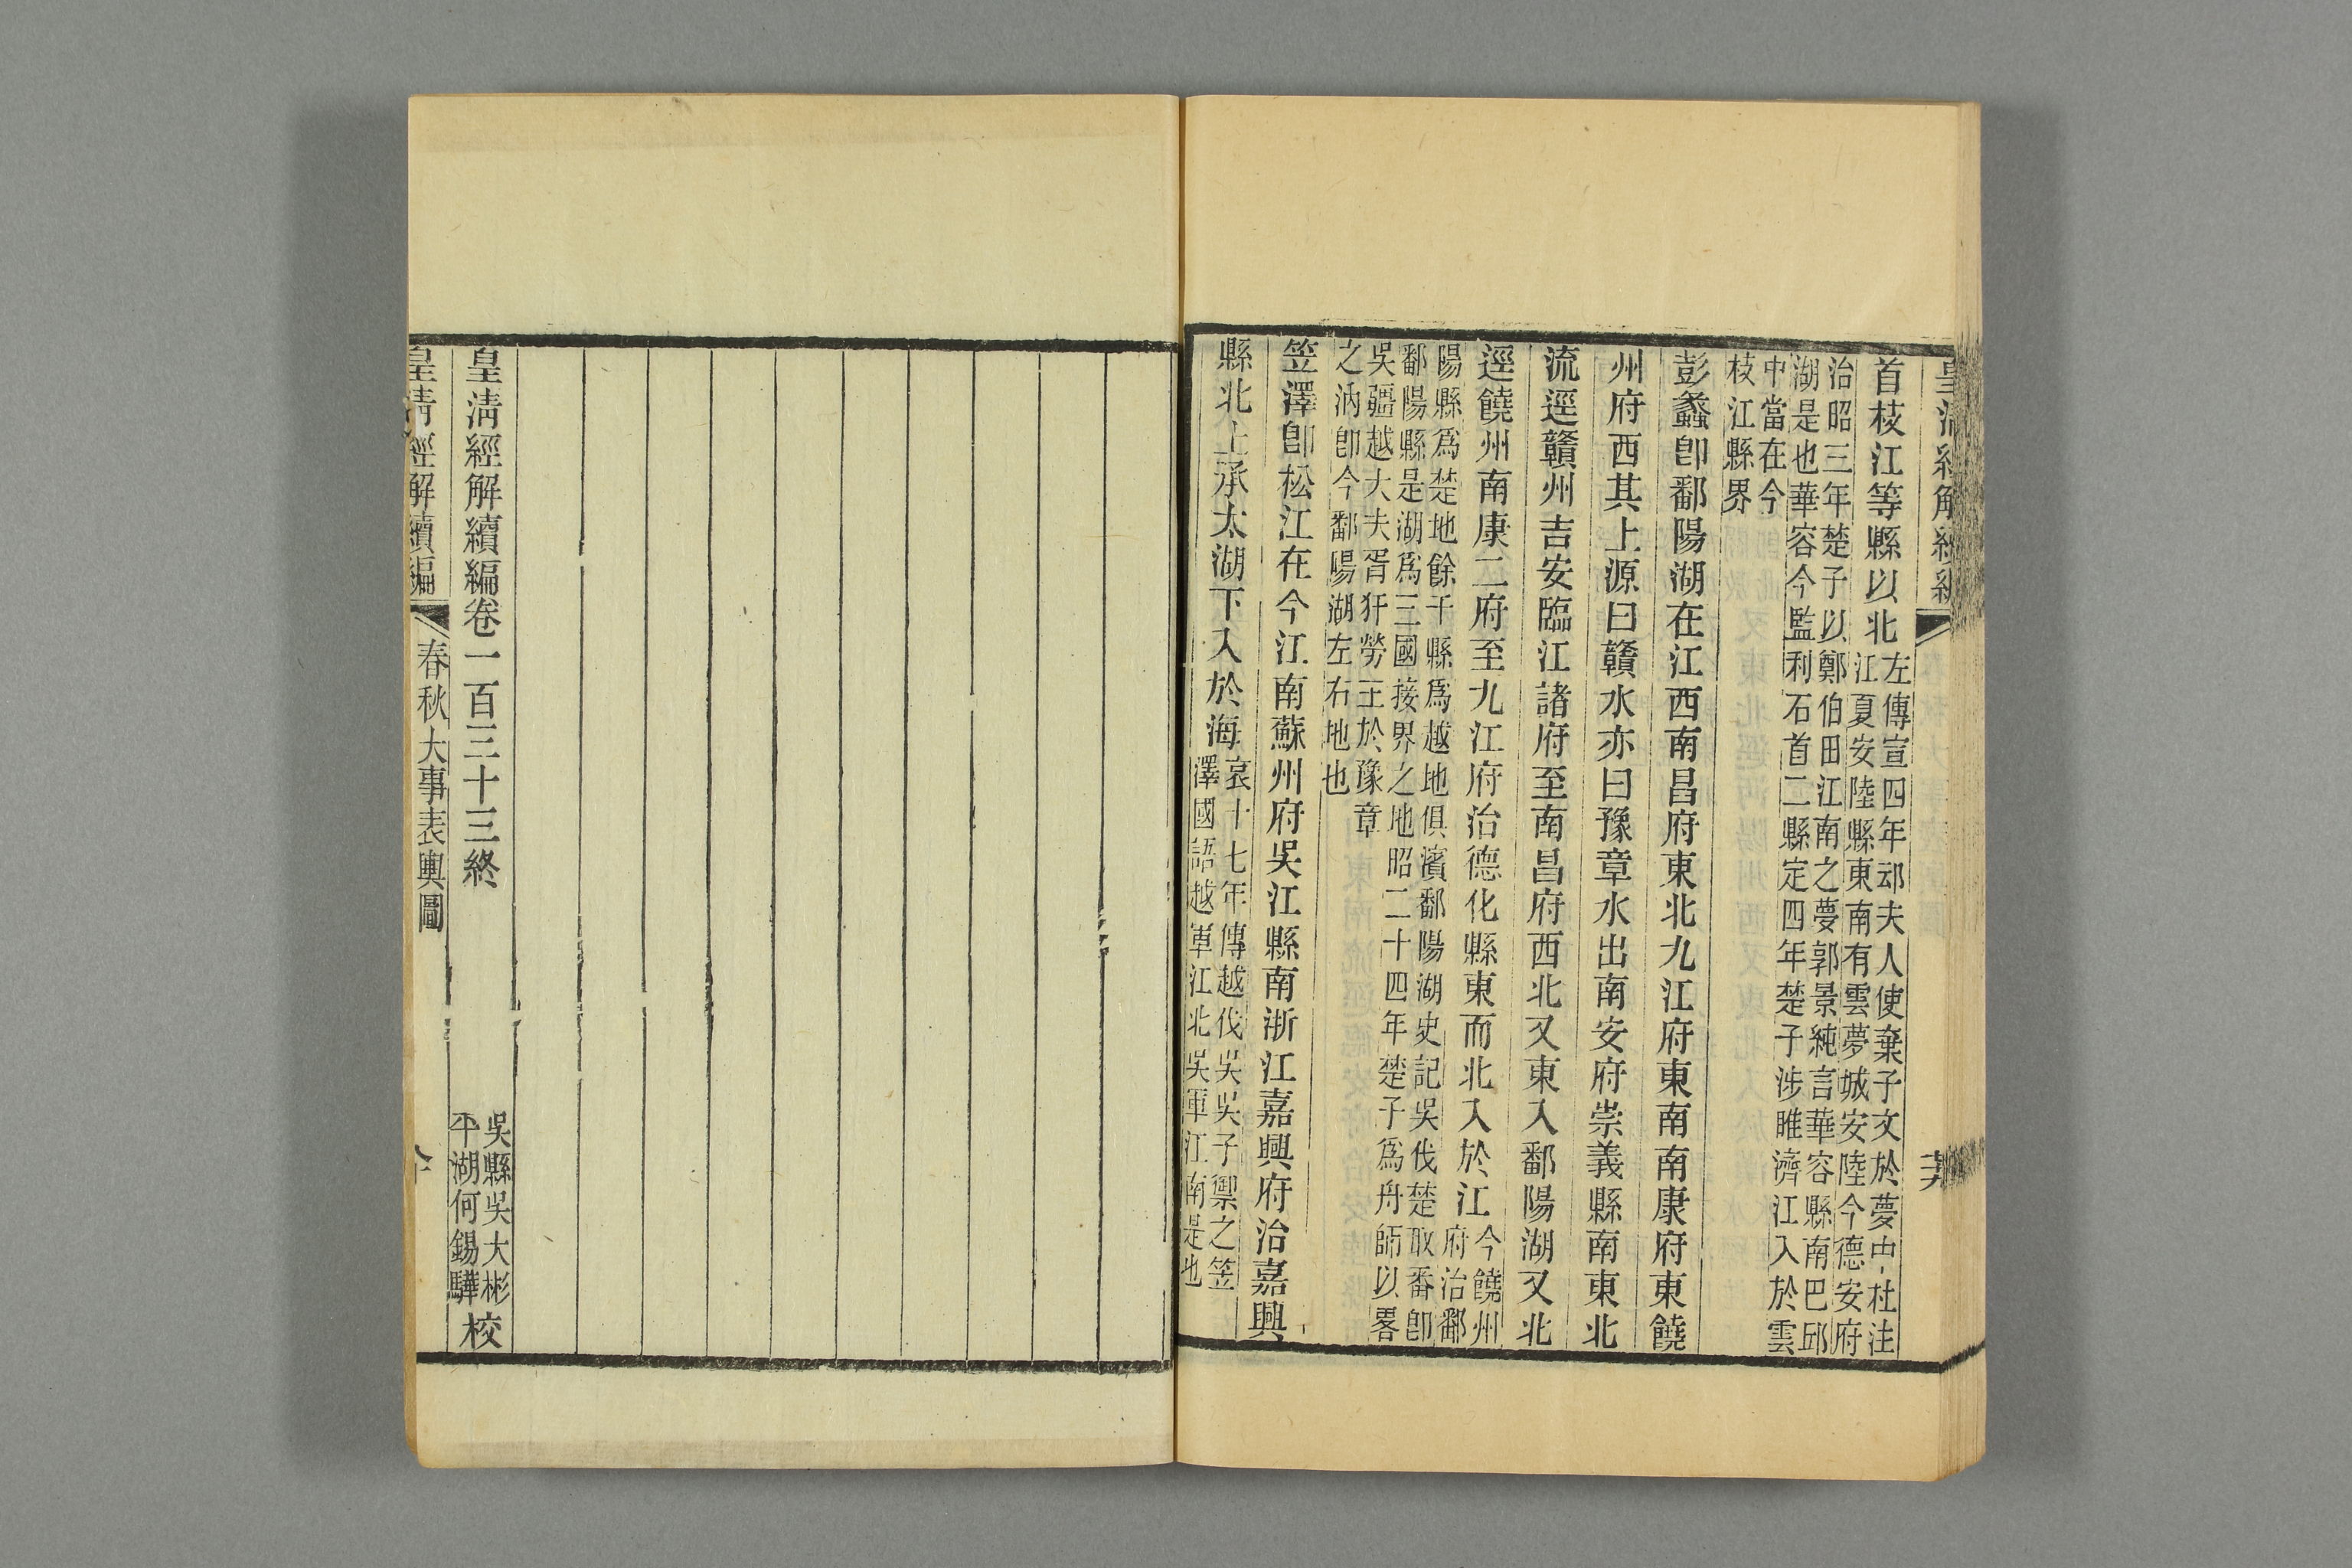 皇清經解續編
首枝江等縣以北左傳宣四年䢵夫人使棄子文於夢中杜注
江夏安陸縣東南有雲夢城安陸今德安府
治昭三年楚子以鄭伯田江南之夢郭景純言華容縣南巴邱
湖是也華容今監利石首二縣定四年楚子涉睢濟江入於雲
中當在今
枝江縣界
彭蠡卽鄱陽湖在江西南昌府東北九江府東南南康府東饒
州府西其上源曰贛水亦曰豫章水出南安府崇義縣南東北
流逕贛州吉安臨江諸府至南昌府西北又東入鄱陽湖又北
逕饒州南康二府至九江府治德化縣東而北入於江今饒州
府治鄱
陽縣爲楚地餘干縣爲越地俱濱鄱陽湖史記吳伐楚取番卽
鄱陽縣是湖爲三國接界之地昭二十四年楚子爲舟師以畧
吳疆越大夫胥犴勞王於豫章
之汭卽今鄱陽湖左右地也
笠澤卽松江在今江南蘇州府吳江縣南浙江嘉興府治嘉興
縣北上承太湖下入於海哀十七年傳越伐吳吳子禦之笠
澤國語越軍江北吳軍江南是也
皇清經解續編卷一百三十三終
吳縣吳大彬
平湖何錫驊校
皇清經解續編
春秋大事表輿圖